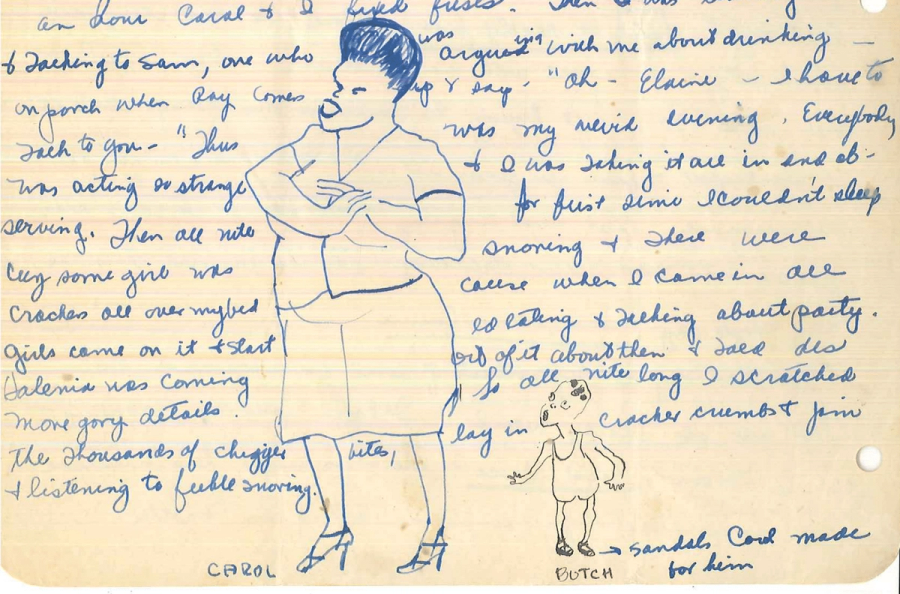 an hour Carol & I fixed fuses. Then I was
& talking to Sam, one who was arguing with me about drinking —
on porch when Ray comes up & say - "Oh - Elaine - I have to
talk to you - " Thus was my weird evening. Everybody
was acting so strange & I was taking it all in and ob-
serving. Then all nite for first time I couldn't sleep
cuz some girl was snoring & there were
crackers all over my bed cause when I came in all
girls came on it & start ed eating & talking about party.
was coming out of it about then &
more gory details. So all nite long I scratched
the thousands of chigger bites, lay in cracker crumbs &
& listening to feeble snoring.
→ sandals Carol made
for him
CAROL
BUTCH